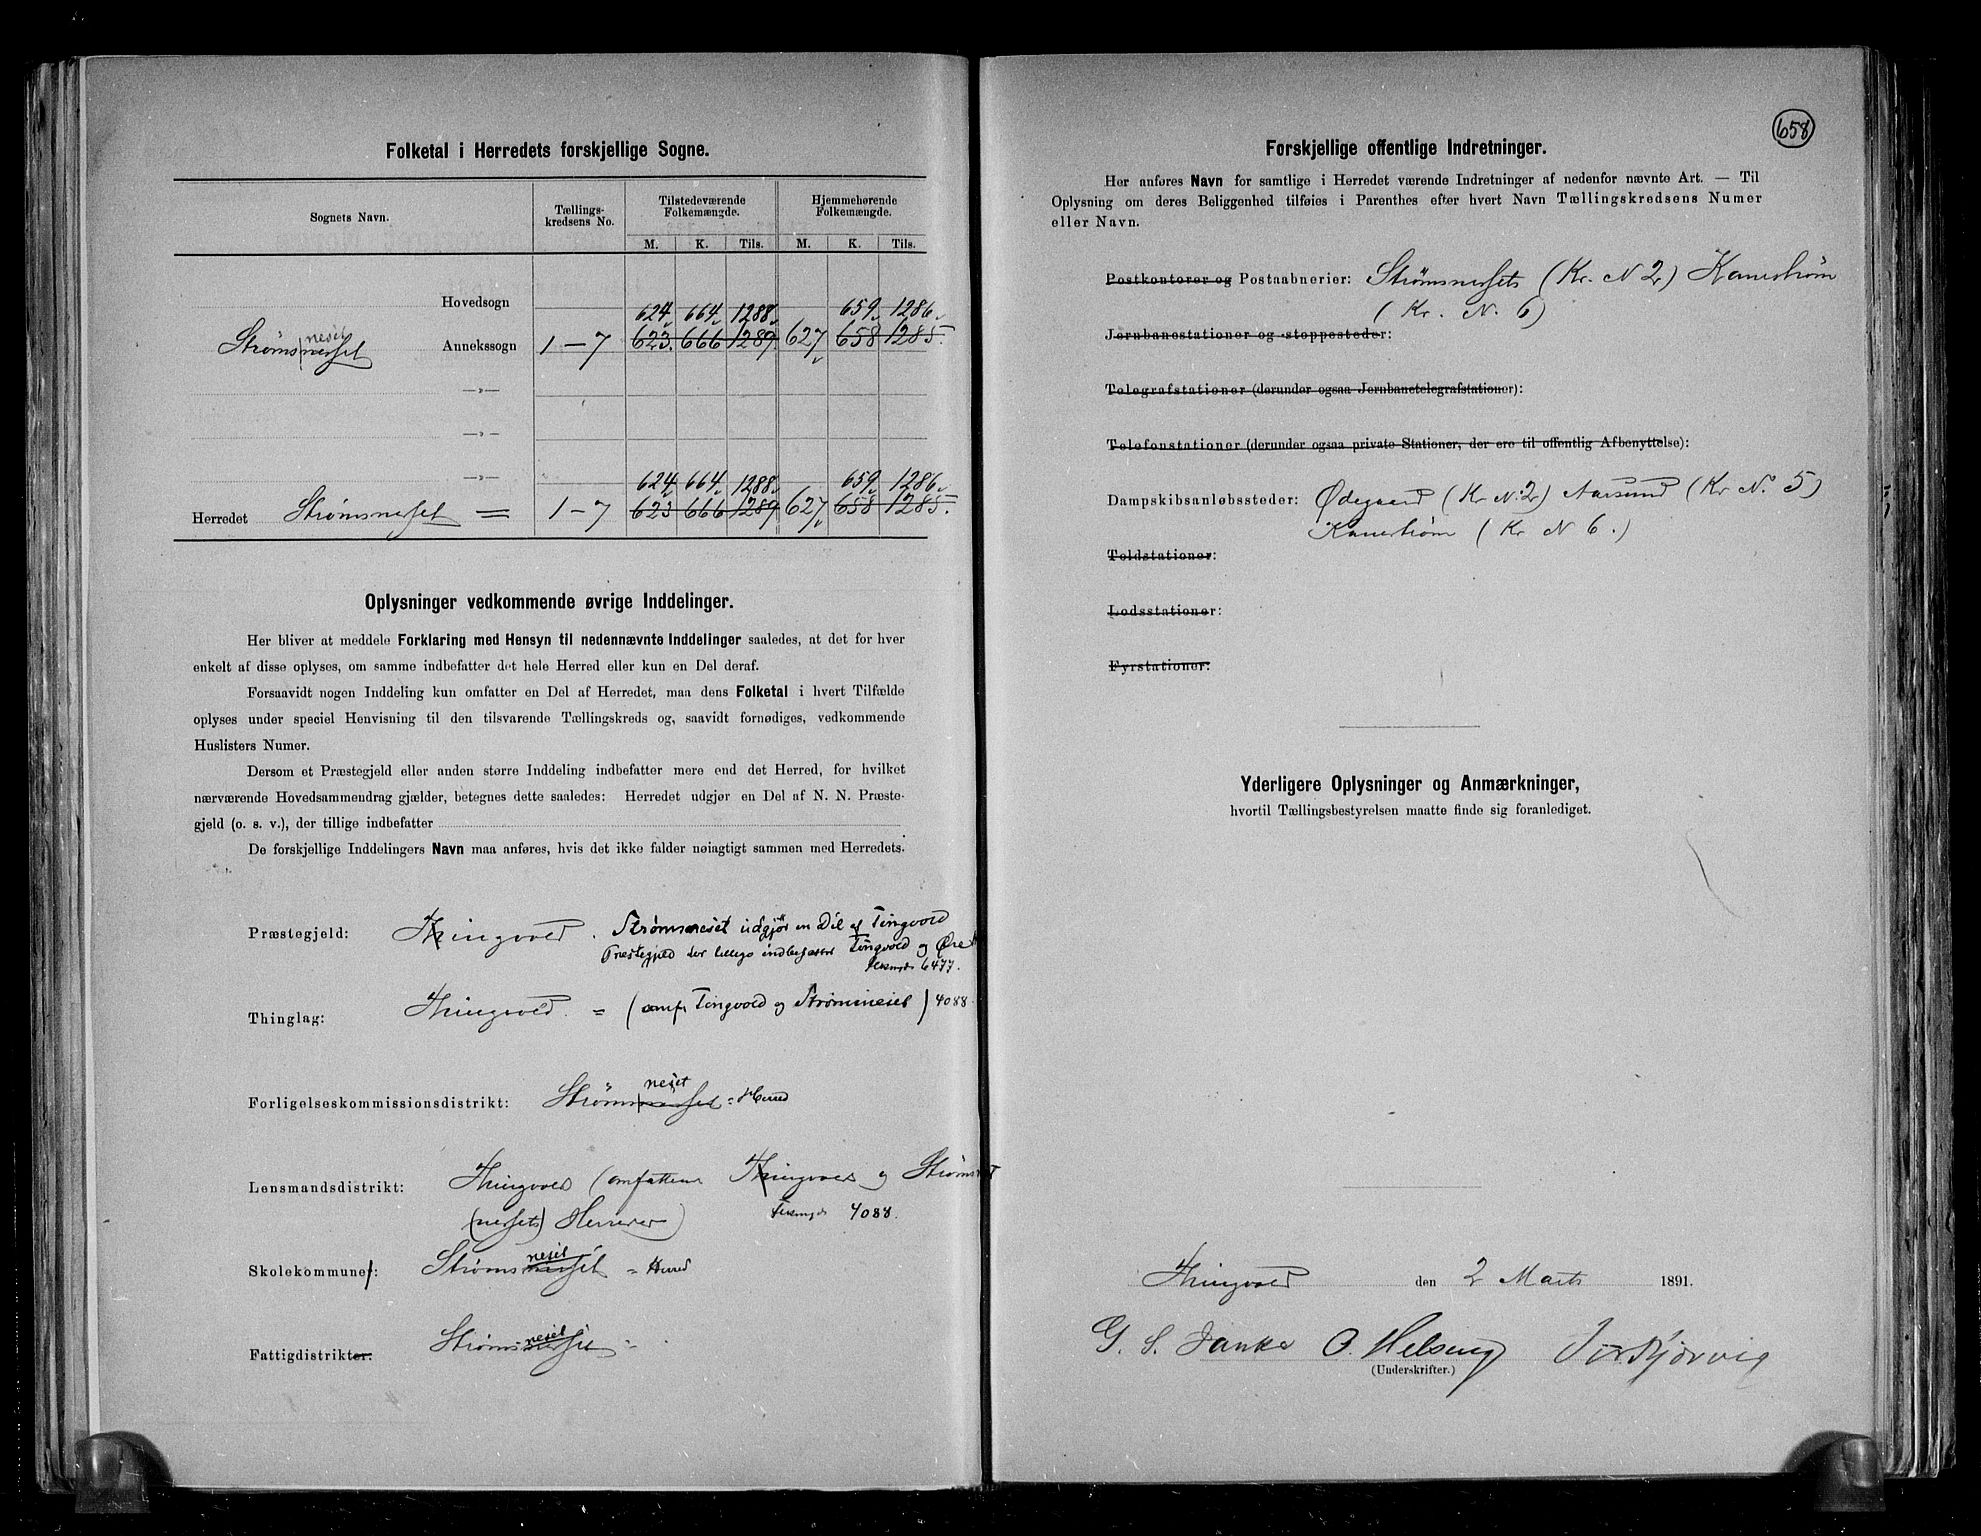 Folketal i Herredets forskjellige Sogne.
Sognets Navn. Tællings-kredsens No. Tilstedeværende Folkemængde. Hjemmehørende Folkemængde.
M. K. Tils. M. K. Tils.
Hovedsogn
624 664 1288 659 1286
neset
Strømsnerset Annekssogn 1-7 623 666 1289 627 658 1285
—„—
—„—
—„—
624 664 1288 659 1286
Herredet Strømsnerset = 1-7 623 666 1289 627 658 1285.
Oplysninger vedkommende øvrige Inddelinger.
Her bliver at meddele Forklaring med Hensyn til nedennævnte Inddelinger saaledes, at det for hver
enkelt af disse oplyses, om samme indbefatter det hele Herred eller kun en Del deraf.
Forsaavidt nogen Inddeling kun omfatter en Del af Herredet, maa dens Folketal i hvert Tilfælde
oplyses under speciel Henvisning til den tilsvarende Tællingskreds og, saavidt fornødiges, vedkommende
Huslisters Numer.
Dersom et Præstegjeld eller anden større Inddeling indbefatter mere end det Herred, for hvilket
nærværende Hovedsammendrag gjælder, betegnes dette saaledes: Herredet udgjør en Del af N. N. Præste-
gjeld (o. s. v.), der tillige indbefatter
De forskjellige Inddelingers Navn maa anføres, hvis det ikke falder nøiagtigt sammen med Herredets.
Præstegjeld: Thingvold. Strømsneset udgjør en Del af Tingvold
Præstegjeld der tillige indbefatter Tingvold og Øre
6477.
Thinglag: Thingvold. = (omf. Tingvold og Strømsneset) 4088
neset
Forligelseskommissionsdistrikt: Strømsnerset = Herred
Lensmandsdistrikt: Thingvold (omfatten Thingvold og Strøms
(nersets) Herreder) 4088.
neset
Skolekommuner: Strømsnerset = Herred
neset
Fattigdistrikter: Strømsnerset =
658
Forskjellige offentlige Indretninger.
Her anføres Navn for samtlige i Herredet værende Indretninger af nedenfor nævnte Art. — Til
Oplysning om deres Beliggenhed tilføies i Parenthes efter hvert Navn Tællingskredsens Numer
eller Navn.
Postkontorer og Postaabnerier: Strømsnersets (Kr. N 2) Kanestrøm
(Kr. N. 6)
Jernbanestationer og -stoppesteder:
Telegrafstationer (derunder ogsaa Jernbanetelegrafstationer):
Telefonstationer (derunder ogsaa private Stationer, der ere til offentlig Afbenyttelse):
Dampskibsanløbssteder: Ødegaard (Kr N. 2) Aarsund (Kr No 5)
Kanestrøm (Kr N 6.)
Toldstationer:
Lodsstationer:
Fyrstationer:
Yderligere Oplysninger og Anmærkninger,
hvortil Tællingsbestyrelsen maatte finde sig foranlediget.
Thingvold den 2 Marts 1891.
G. S. Janke O. Helseng
(Underskrifter.)